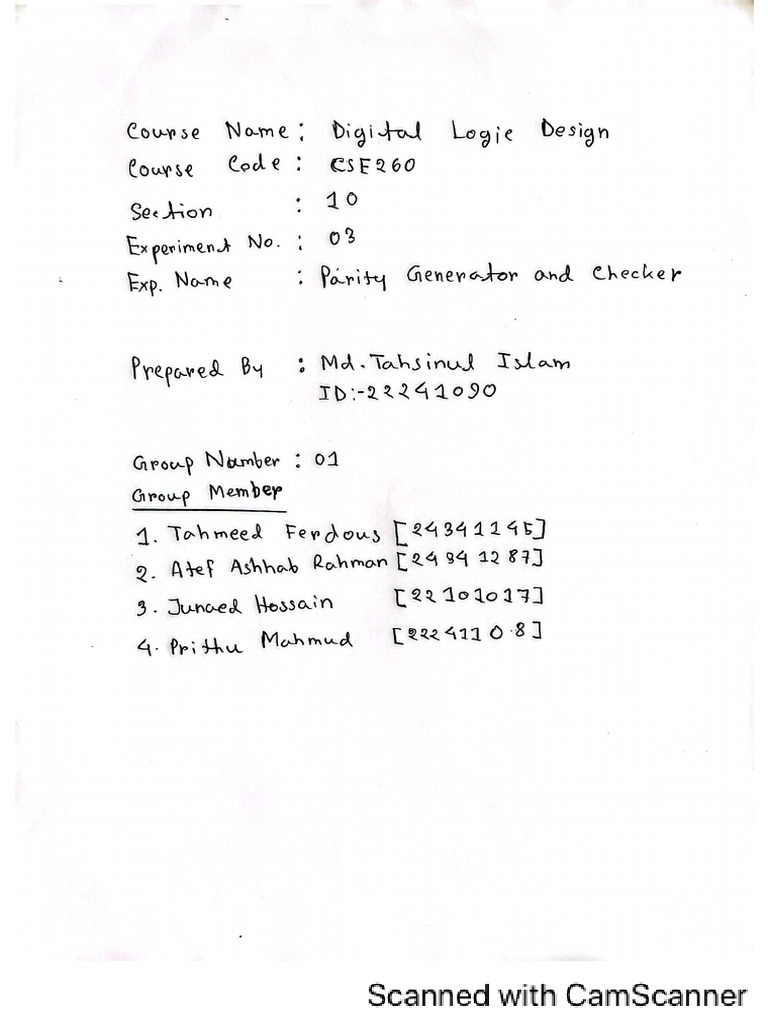 Course Name : Digital Logic Design
Course Code : CSE260
Section : 10
Experiment No. : 03
Exp. Name : Parity Generator and Checker
Prepared By : Md. Tahsinul Islam
ID:-22241090
Group Number : 01
Group Member
1. Tahmeed Ferdous [24341145]
2. Atef Ashhab Rahman [24941287]
3. Junaed Hossain [22101017]
4. Prithu Mahmud [22241108]
Scanned with CamScanner